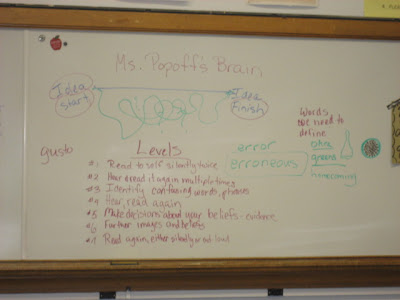 Ms. Popoff's Brain
Idea
Start
Idea
Finish
Words
we need to
define
ohm
homecoming
gusto
error
erroneous
Levels
#1 Read to self silently twice
#2 Hear & read it again multiple times
#3 Identify confusing words, phrases
#4 Hear, read again
#5 Make decisions about your beliefs - evidence
#6 Further images and beliefs
#7 Read again, either silently or out loud